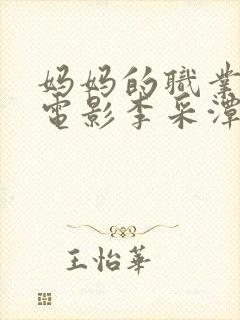 妈妈的職業
電影李采潭
王怡華